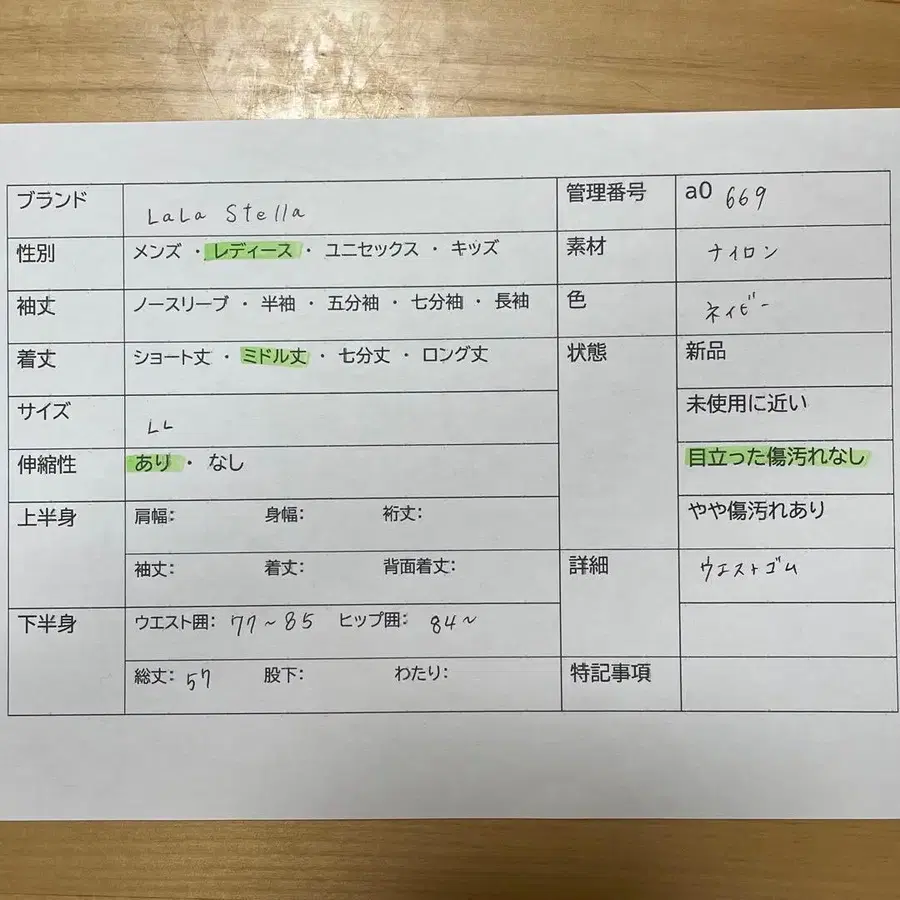 ブランド LaLa Stella 管理番号 a0 669
性別 メンズ ・ レディース ・ ユニセックス ・ キッズ 素材 ナイロン
袖丈 ノースリーブ ・ 半袖 ・ 五分袖 ・ 七分袖 ・ 長袖 色 ネイビー
着丈 ショート丈 ・ ミドル丈 ・ 七分丈 ・ ロング丈 状態 新品
サイズ LL 未使用に近い
伸縮性 あり ・ なし 目立った傷汚れなし
上半身 肩幅: 身幅: 裄丈: やや傷汚れあり
袖丈: 着丈: 背面着丈: 詳細 ウエストゴム
下半身 ウエスト囲: 77~85 ヒップ囲: 84~
総丈: 57 股下: わたり: 特記事項